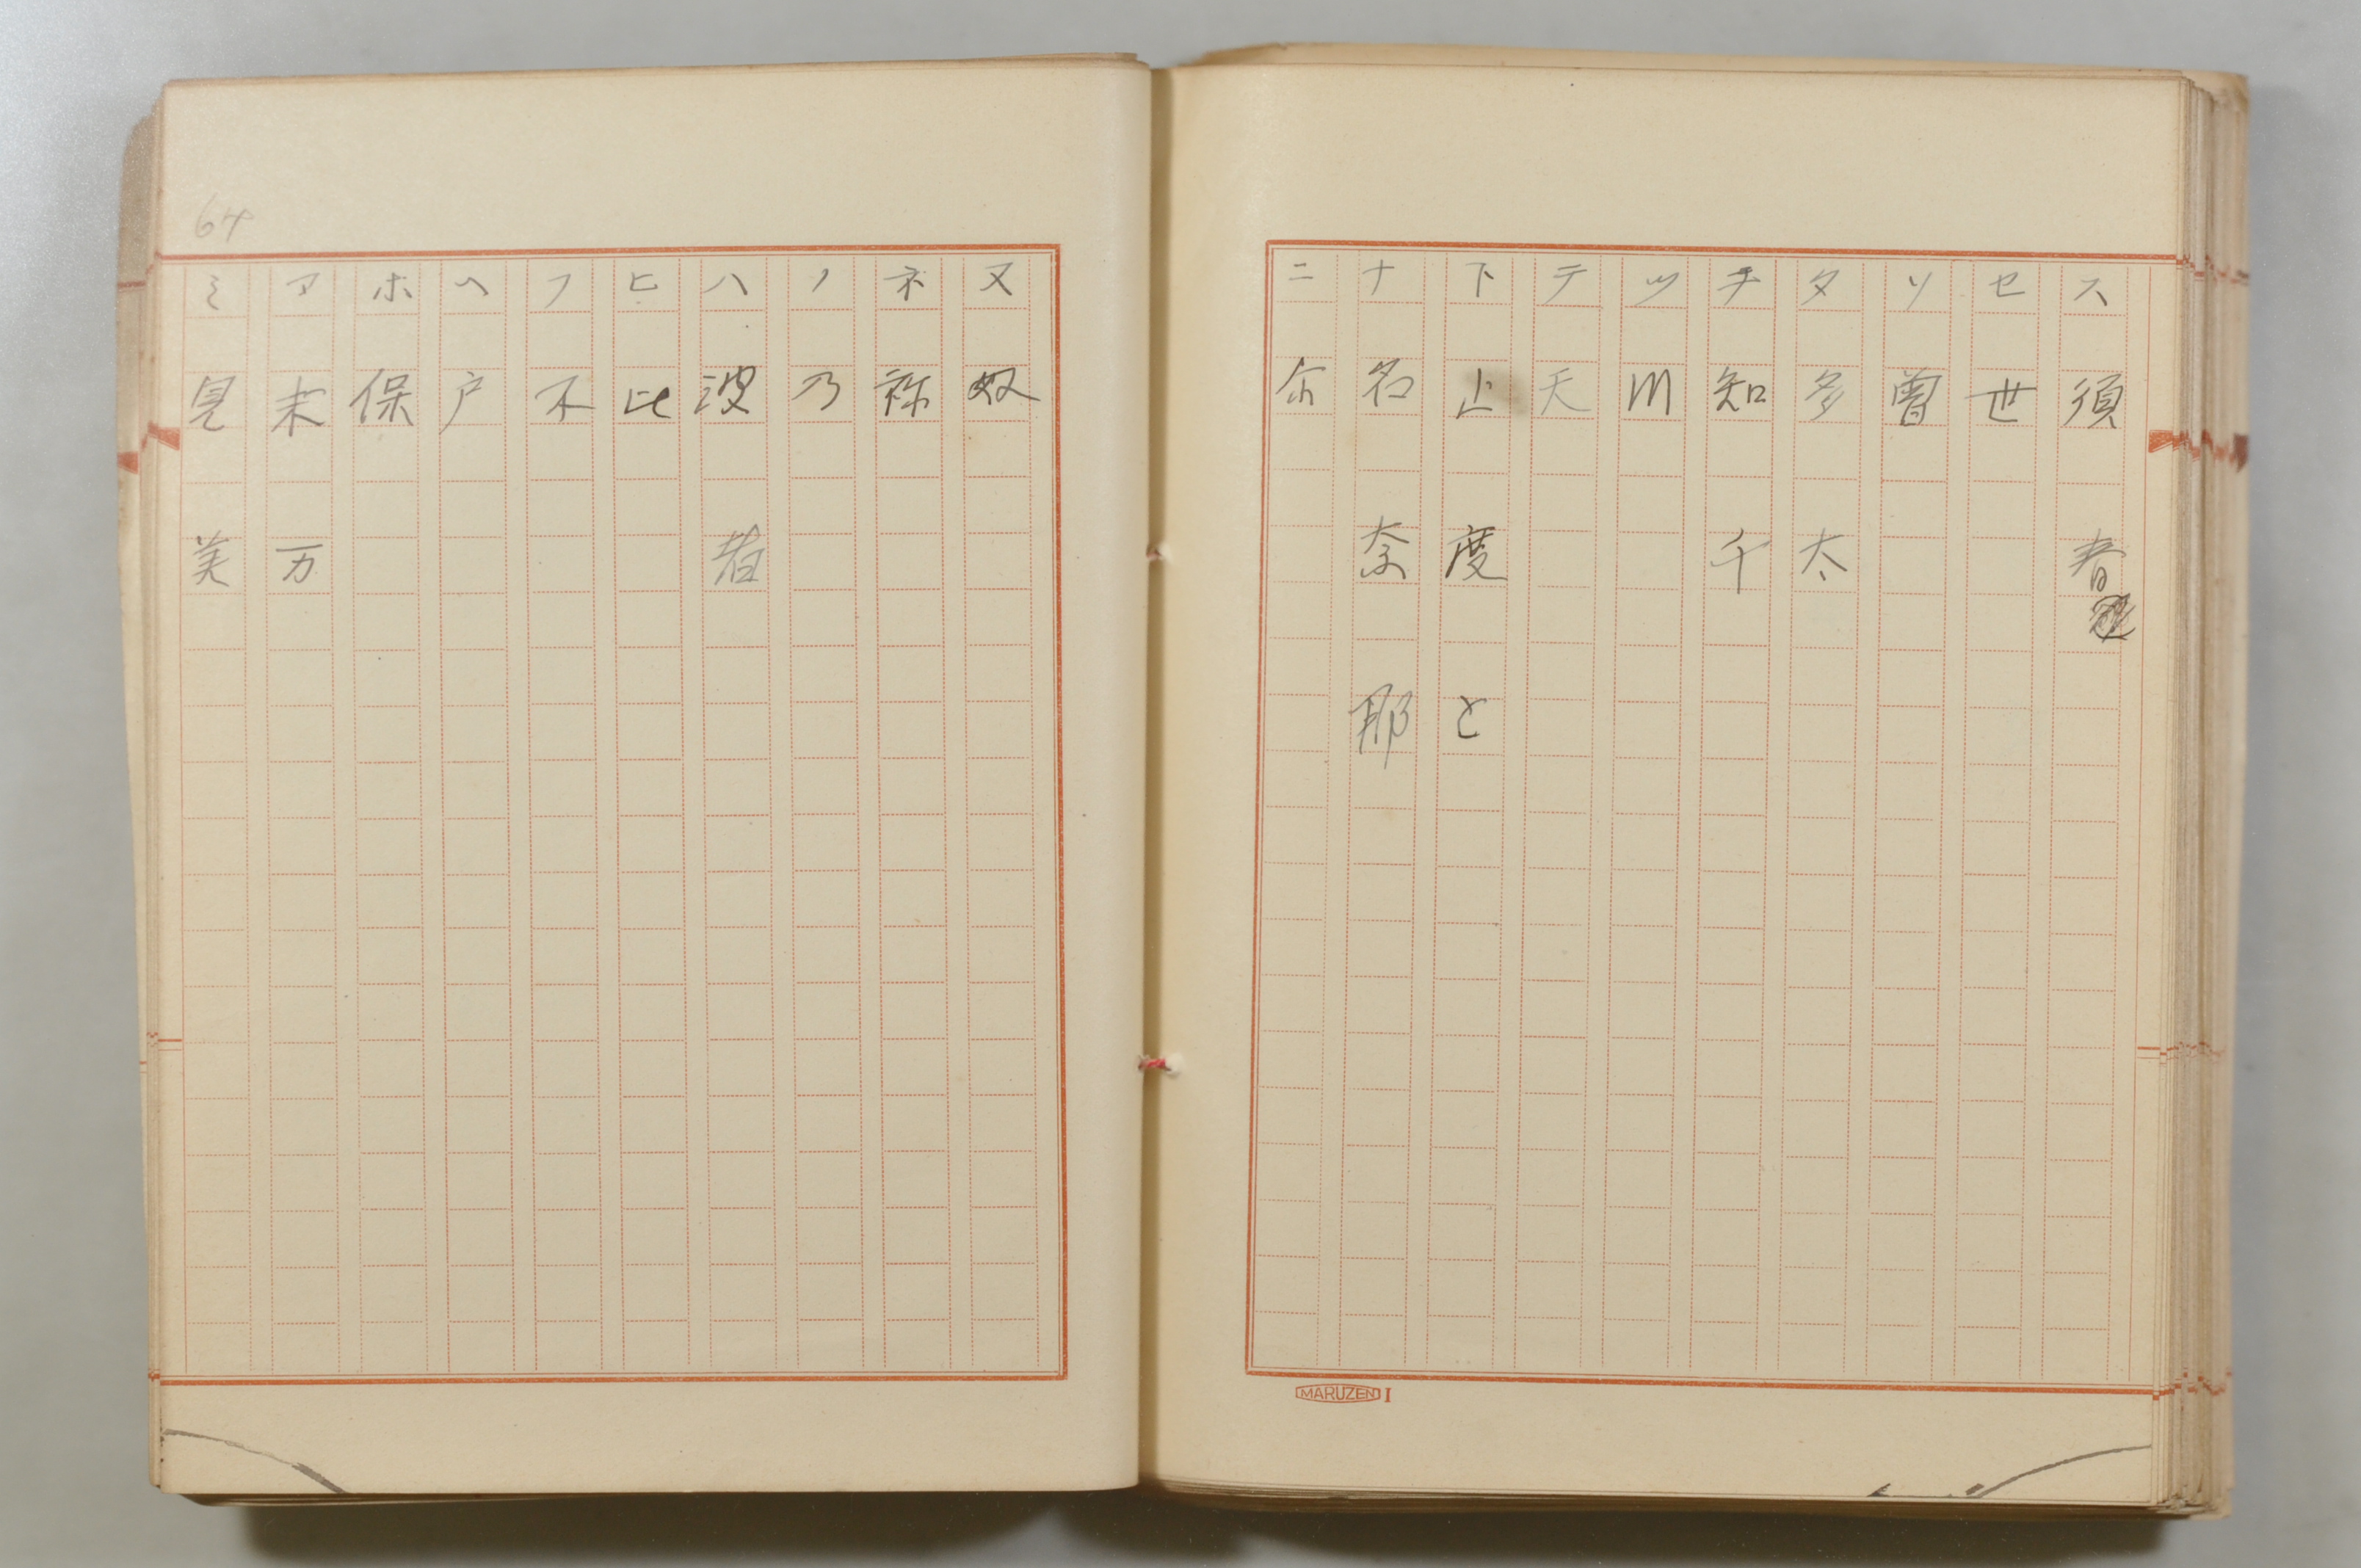 ス 須 春
セ 世
ソ 曽
タ 多 太
チ 知 千
ツ 川
テ 天
ト 止 度 と
ナ 名 奈 那
ニ 尓
MARUZEN I
64
ヌ 奴
ネ 祢
ノ 乃
ハ 波 者
ヒ 比
フ 不
ヘ 戸
ホ 保
マ 末 万
ミ 見 美